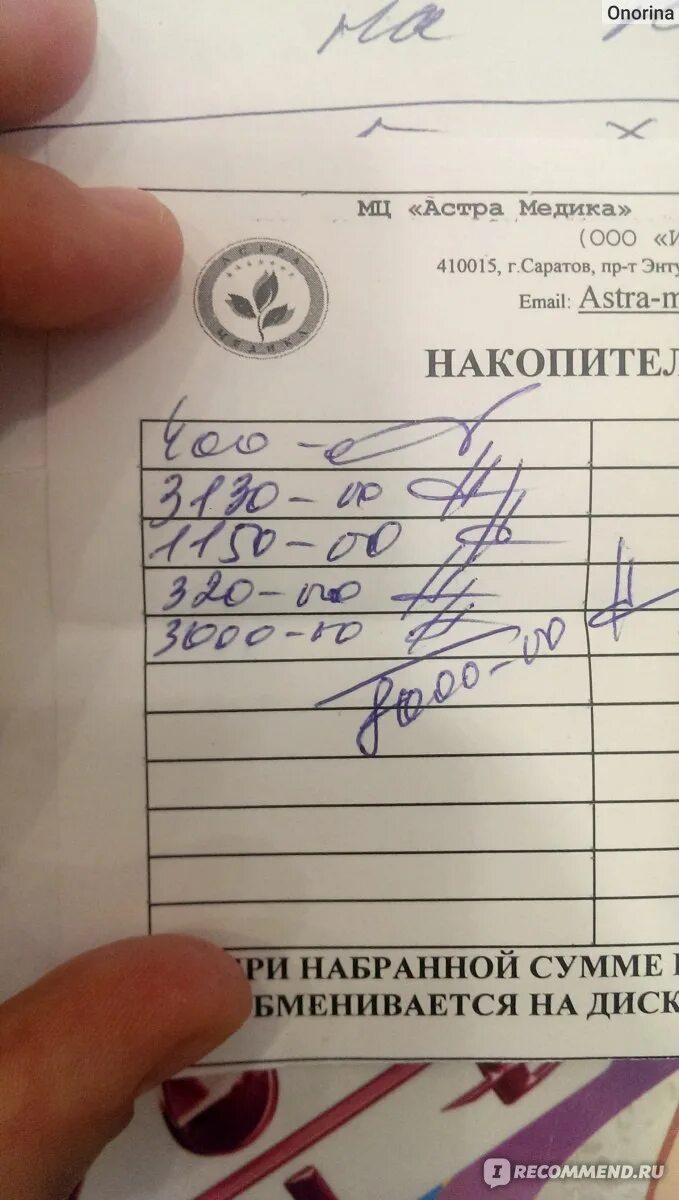 Onorina
на
МЦ «Астра Медика»
(ООО «И
410015, г.Саратов, пр-т Энту
Email: Astra-m
АСТРА
МЕДИКА
НАКОПИТЕЛ
400-
3130-00
1150-00
320-00
3000-00
8000-00
РИ НАБРАННОЙ СУММЕ
БМЕНИВАЕТСЯ НА ДИСК
IRECOMMEND.RU